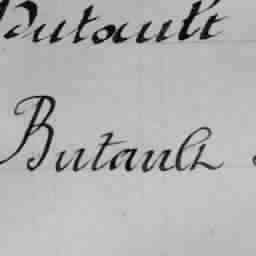 Dutault
Butault